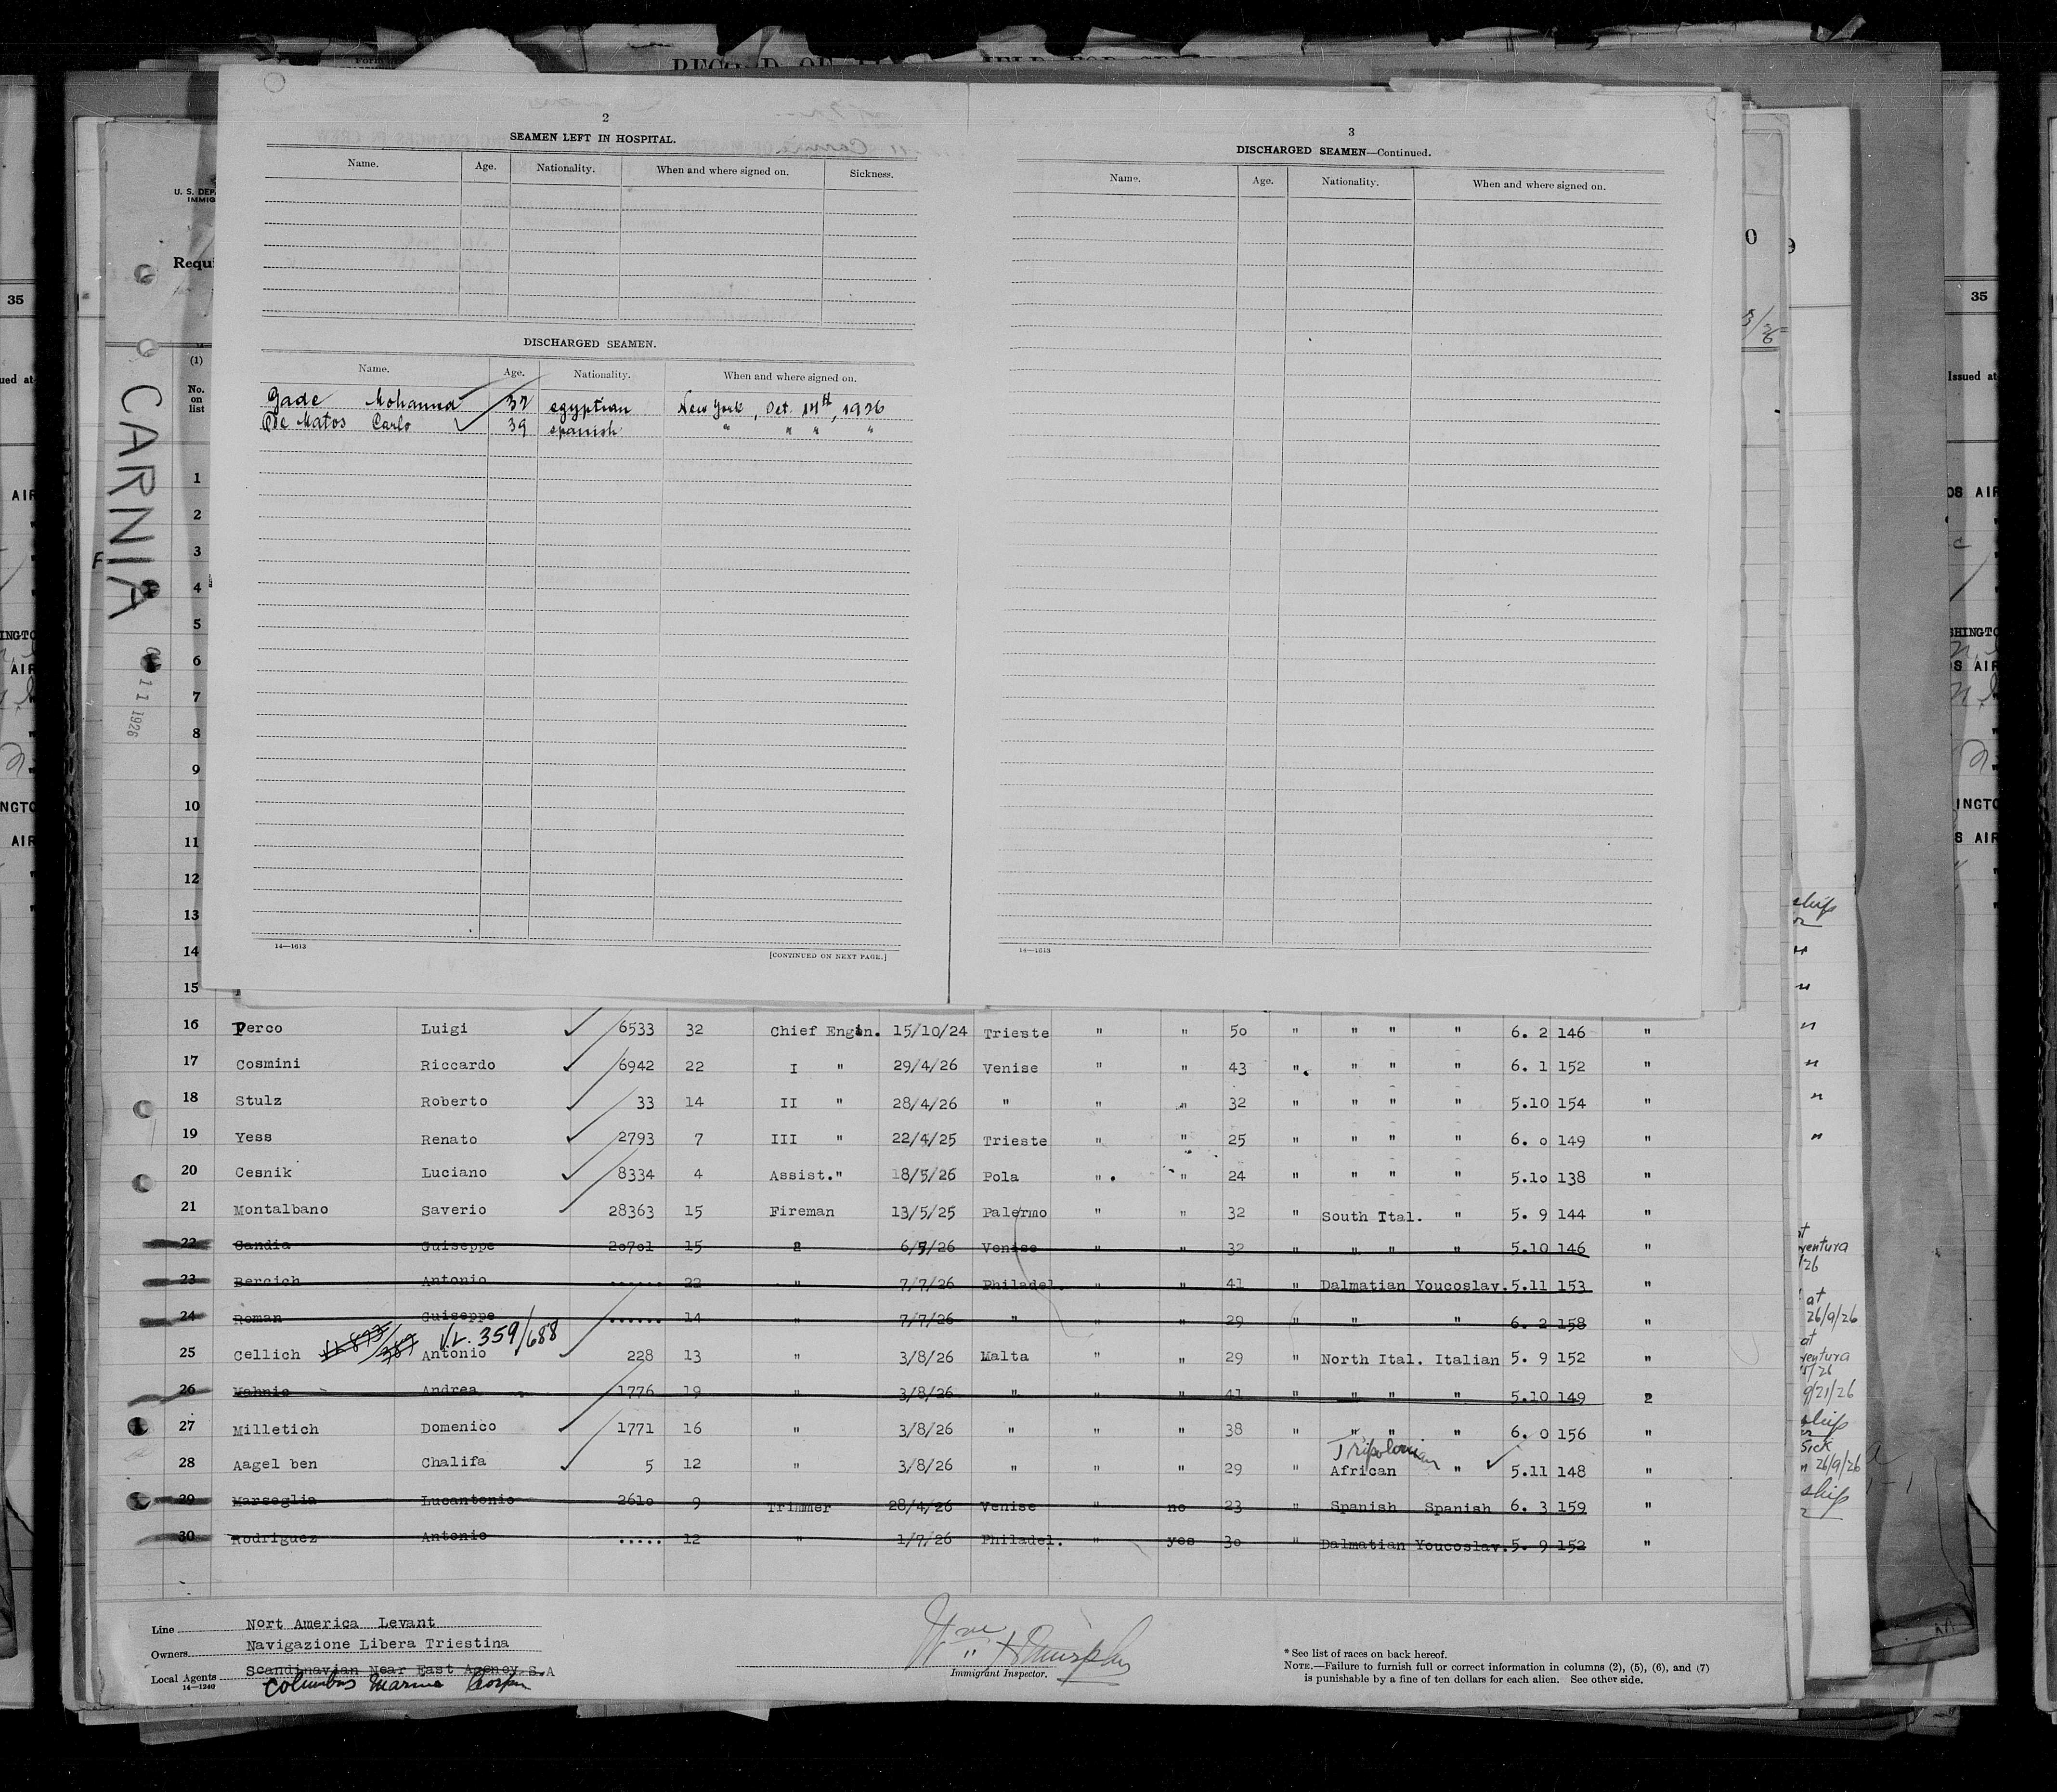 RECORD OF
2
SEAMEN LEFT IN HOSPITAL.
Name. Age. Nationality. When and where signed on. Sickness.
DISCHARGED SEAMEN.
Name. Age. Nationality. When and where signed on.
Gade Mohamed 37 egyptian New York, Oct. 14th, 1926
De Matos Carlo 39 spanish " " " "
14—1613
[CONTINUED ON NEXT PAGE.]
3
DISCHARGED SEAMEN—Continued.
Name. Age. Nationality. When and where signed on.
14—1613
U. S. DEP
IMMIG
Requi
35
35
ued at
Issued at
CARNIA
11 1926
(1)
No.
on
list
1
2
3
4
5
6
7
8
9
10
11
12
13
14
15
16 Perco Luigi 6533 32 Chief Engin. 15/10/24 Trieste " " 50 " " " " 6. 2 146 "
17 Cosmini Riccardo 6942 22 I " 29/4/26 Venise " " 43 " " " " 6. 1 152 "
18 Stulz Roberto 33 14 II " 28/4/26 " " " 32 " " " " 5.10 154 "
19 Yess Renato 2793 7 III " 22/4/25 Trieste " " 25 " " " " 6. 0 149 "
20 Cesnik Luciano 8334 4 Assist." 18/5/26 Pola " " 24 " " " " 5.10 138 "
21 Montalbano Saverio 28363 15 Fireman 13/5/25 Palermo " " 32 " South Ital. " 5. 9 144 "
22 Candia Guiseppe 20701 15 " 6/5/26 Venise " " 32 " " " " 5.10 146 "
23 Bercich Antonio ...... 22 " 7/7/26 Philadel. " " 41 " Dalmatian Youcoslav. 5.11 153 "
24 Roman Guiseppe ...... 14 " 7/7/26 " " " 29 " " " 6. 2 158 "
V.L. 359/688
25 Cellich Antonio 228 13 " 3/8/26 Malta " " 29 " North Ital. Italian 5. 9 152 "
26 Andrea 1776 19 " 3/8/26 " " " 41 " " " " 5.10 149 2
27 Milletich Domenico 1771 16 " 3/8/26 " " " 38 " " " " 6. 0 156 "
Tripolonian
28 Aagel ben Chalifa 5 12 " 3/8/26 " " " 29 " African " 5.11 148 "
29 Marseglia Lucantonio 2610 9 Trimmer 28/4/26 Venise " no 23 " Spanish Spanish 6. 3 159 "
30 Rodriguez Antonio ..... 12 " 1/7/26 Philadel. " yes 30 " Dalmatian Youcoslav. 5. 9 152 "
ship
ventura
at
26/9/26
at
ventura
9/21/26
ship
Sick
26/9/26
ship
Line Nort America Levant
Owners Navigazione Libera Triestina
Local Agents Scandinavian Near East Agency S.A
14—1240
Columbus Marine Corpn
Immigrant Inspector.
* See list of races on back hereof.
NOTE.—Failure to furnish full or correct information in columns (2), (5), (6), and (7)
is punishable by a fine of ten dollars for each alien. See other side.